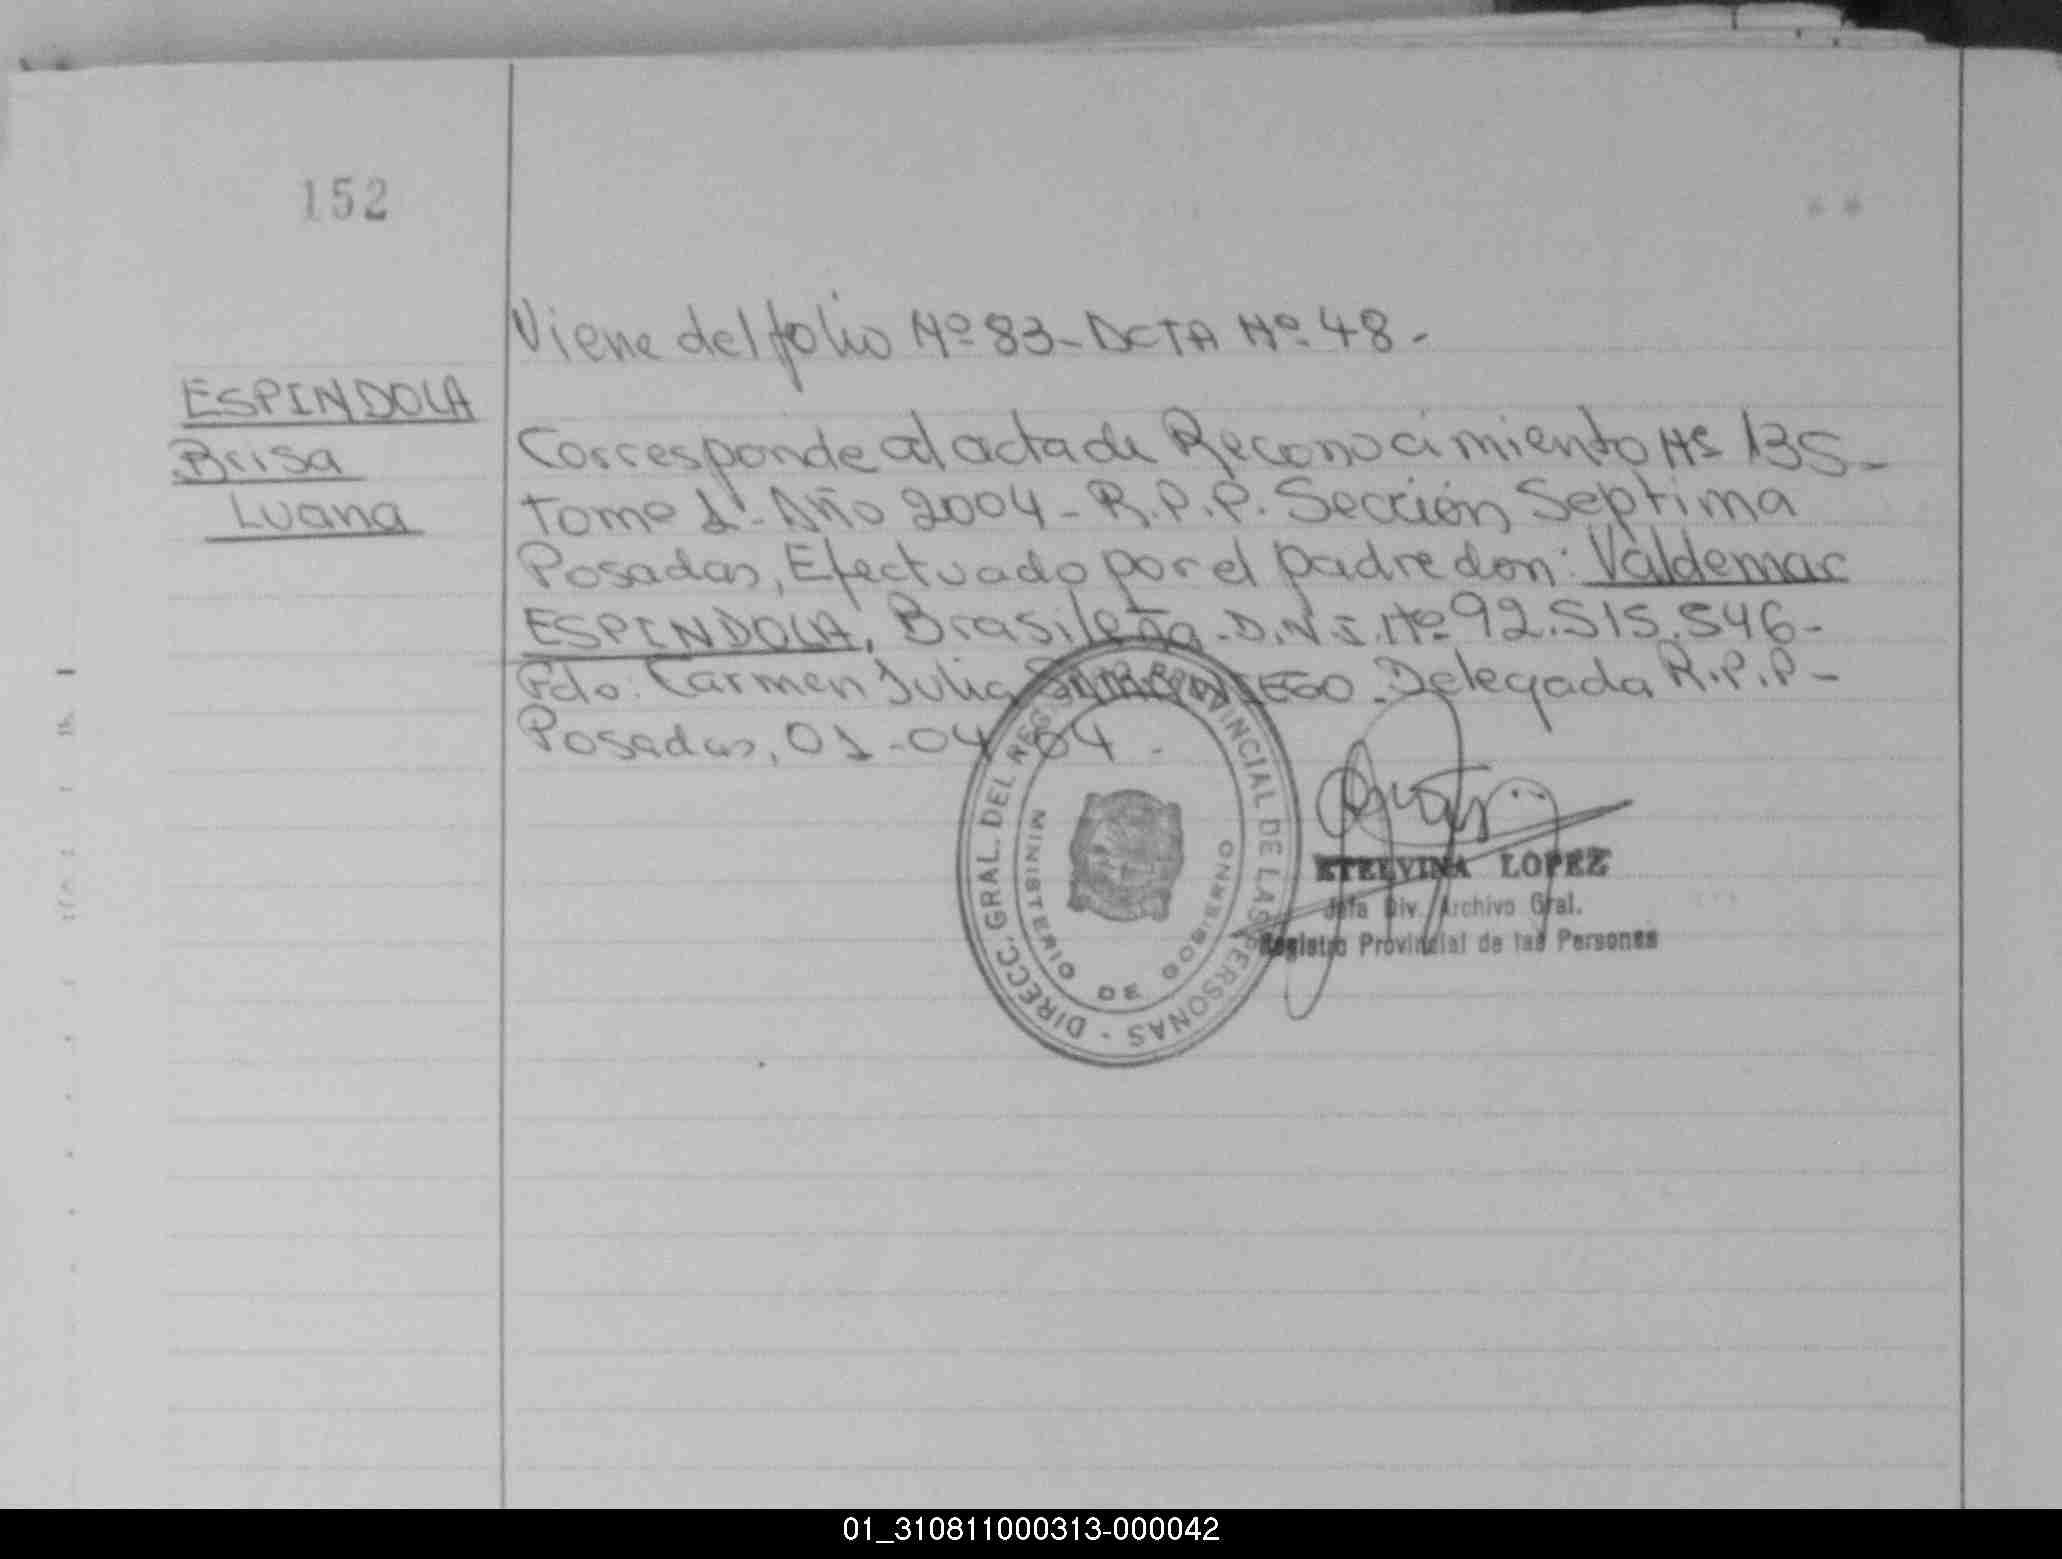 152
Viene del folio Nº 83 - ACTA Nº 48 -
ESPINDOLA
Brisa
Luana
Corresponde al acta de Reconocimiento Nº 135 -
tomo 1º - Año 2004 - R.P.P. Sección Septima
Posadas, Efectuado por el padre don: Valdemar
ESPINDOLA, Brasileña - D.N.I. Nº 92.515.546 -
Fdo: Carmen Julia Delegada R.P.P -
Posadas, 01 - 04 04 -
DIRECC. GRAL. DEL REG. PROVINCIAL DE LAS PERSONAS -
MINISTERIO DE GOBIERNO
ETELVINA LOPEZ
Jefa Div. Archivo Gral.
Registro Provincial de las Personas
01_310811000313-000042